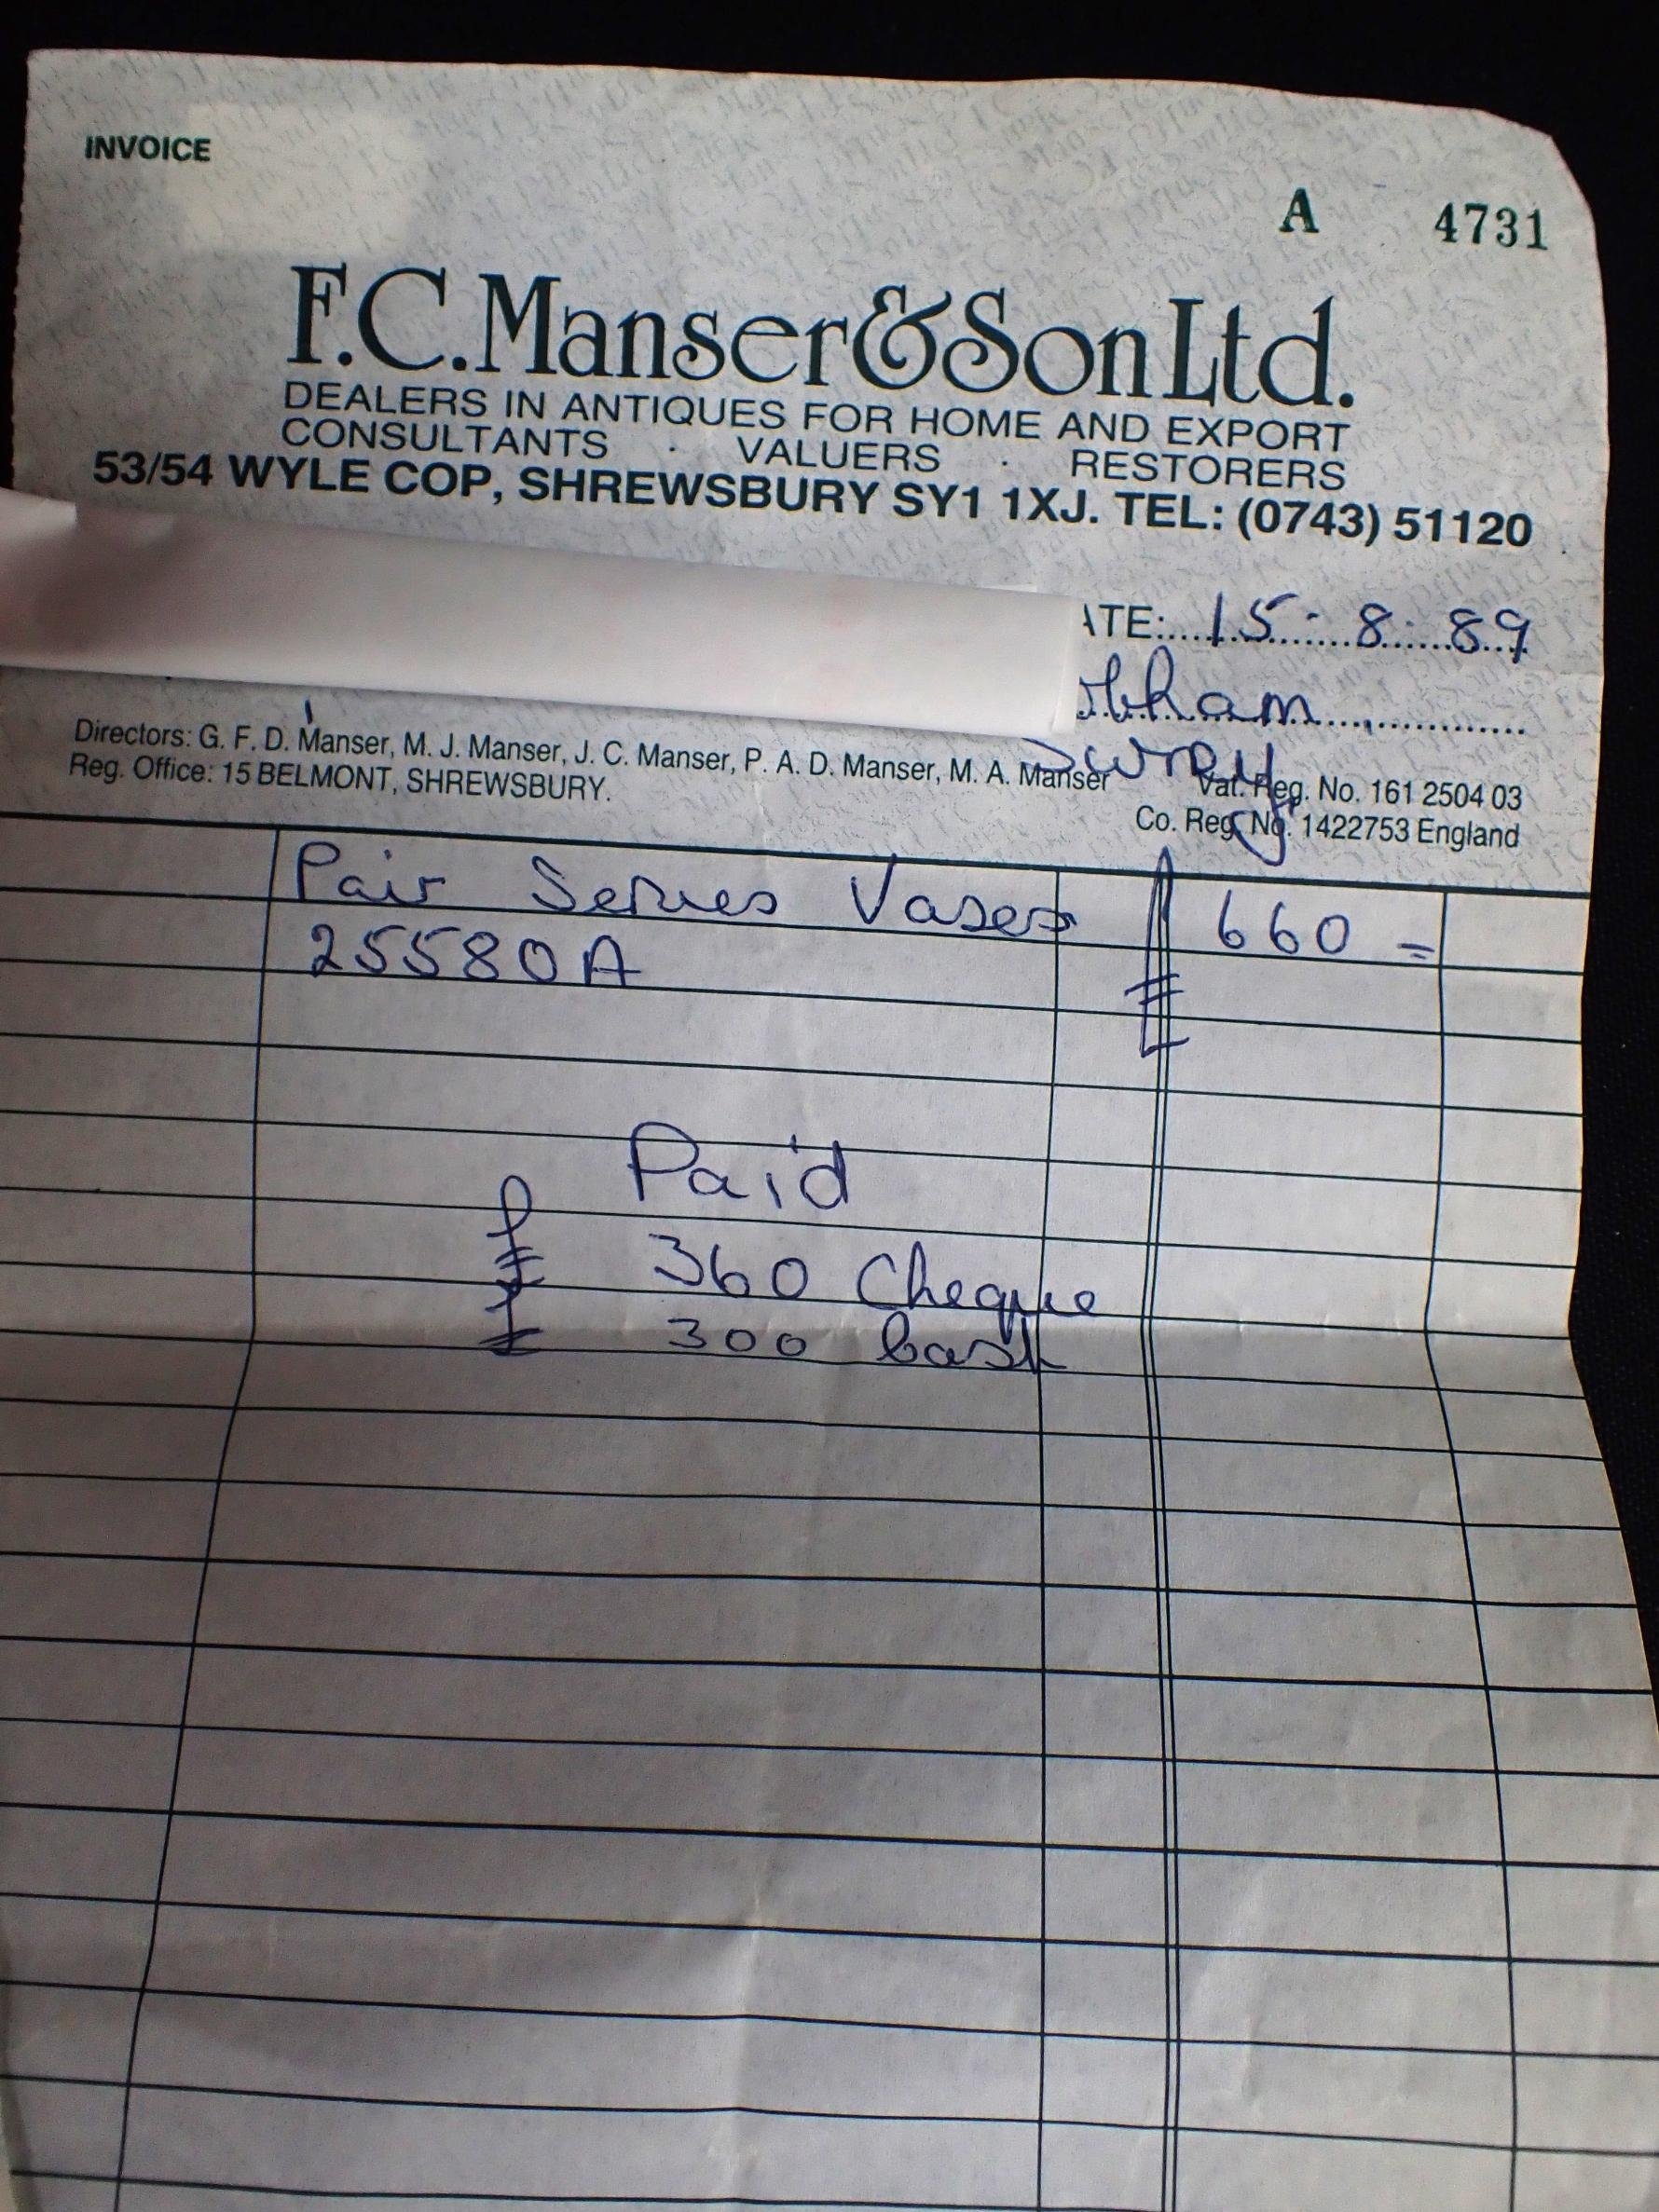 INVOICE
A 4731
F.C. Manser & Son Ltd.
DEALERS IN ANTIQUES FOR HOME AND EXPORT
CONSULTANTS · VALUERS · RESTORERS
53/54 WYLE COP, SHREWSBURY SY1 1XJ. TEL: (0743) 51120
ATE: 15 - 8 - 89
bham
Surrey
Directors: G. F. D. Manser, M. J. Manser, J. C. Manser, P. A. D. Manser, M. A. Manser
Reg. Office: 15 BELMONT, SHREWSBURY.
Vat. Reg. No. 161 2504 03
Co. Reg. No. 1422753 England
Pair Vases £ 660 =
25580A
Paid
£ 360 Cheque
£ 300 Cash